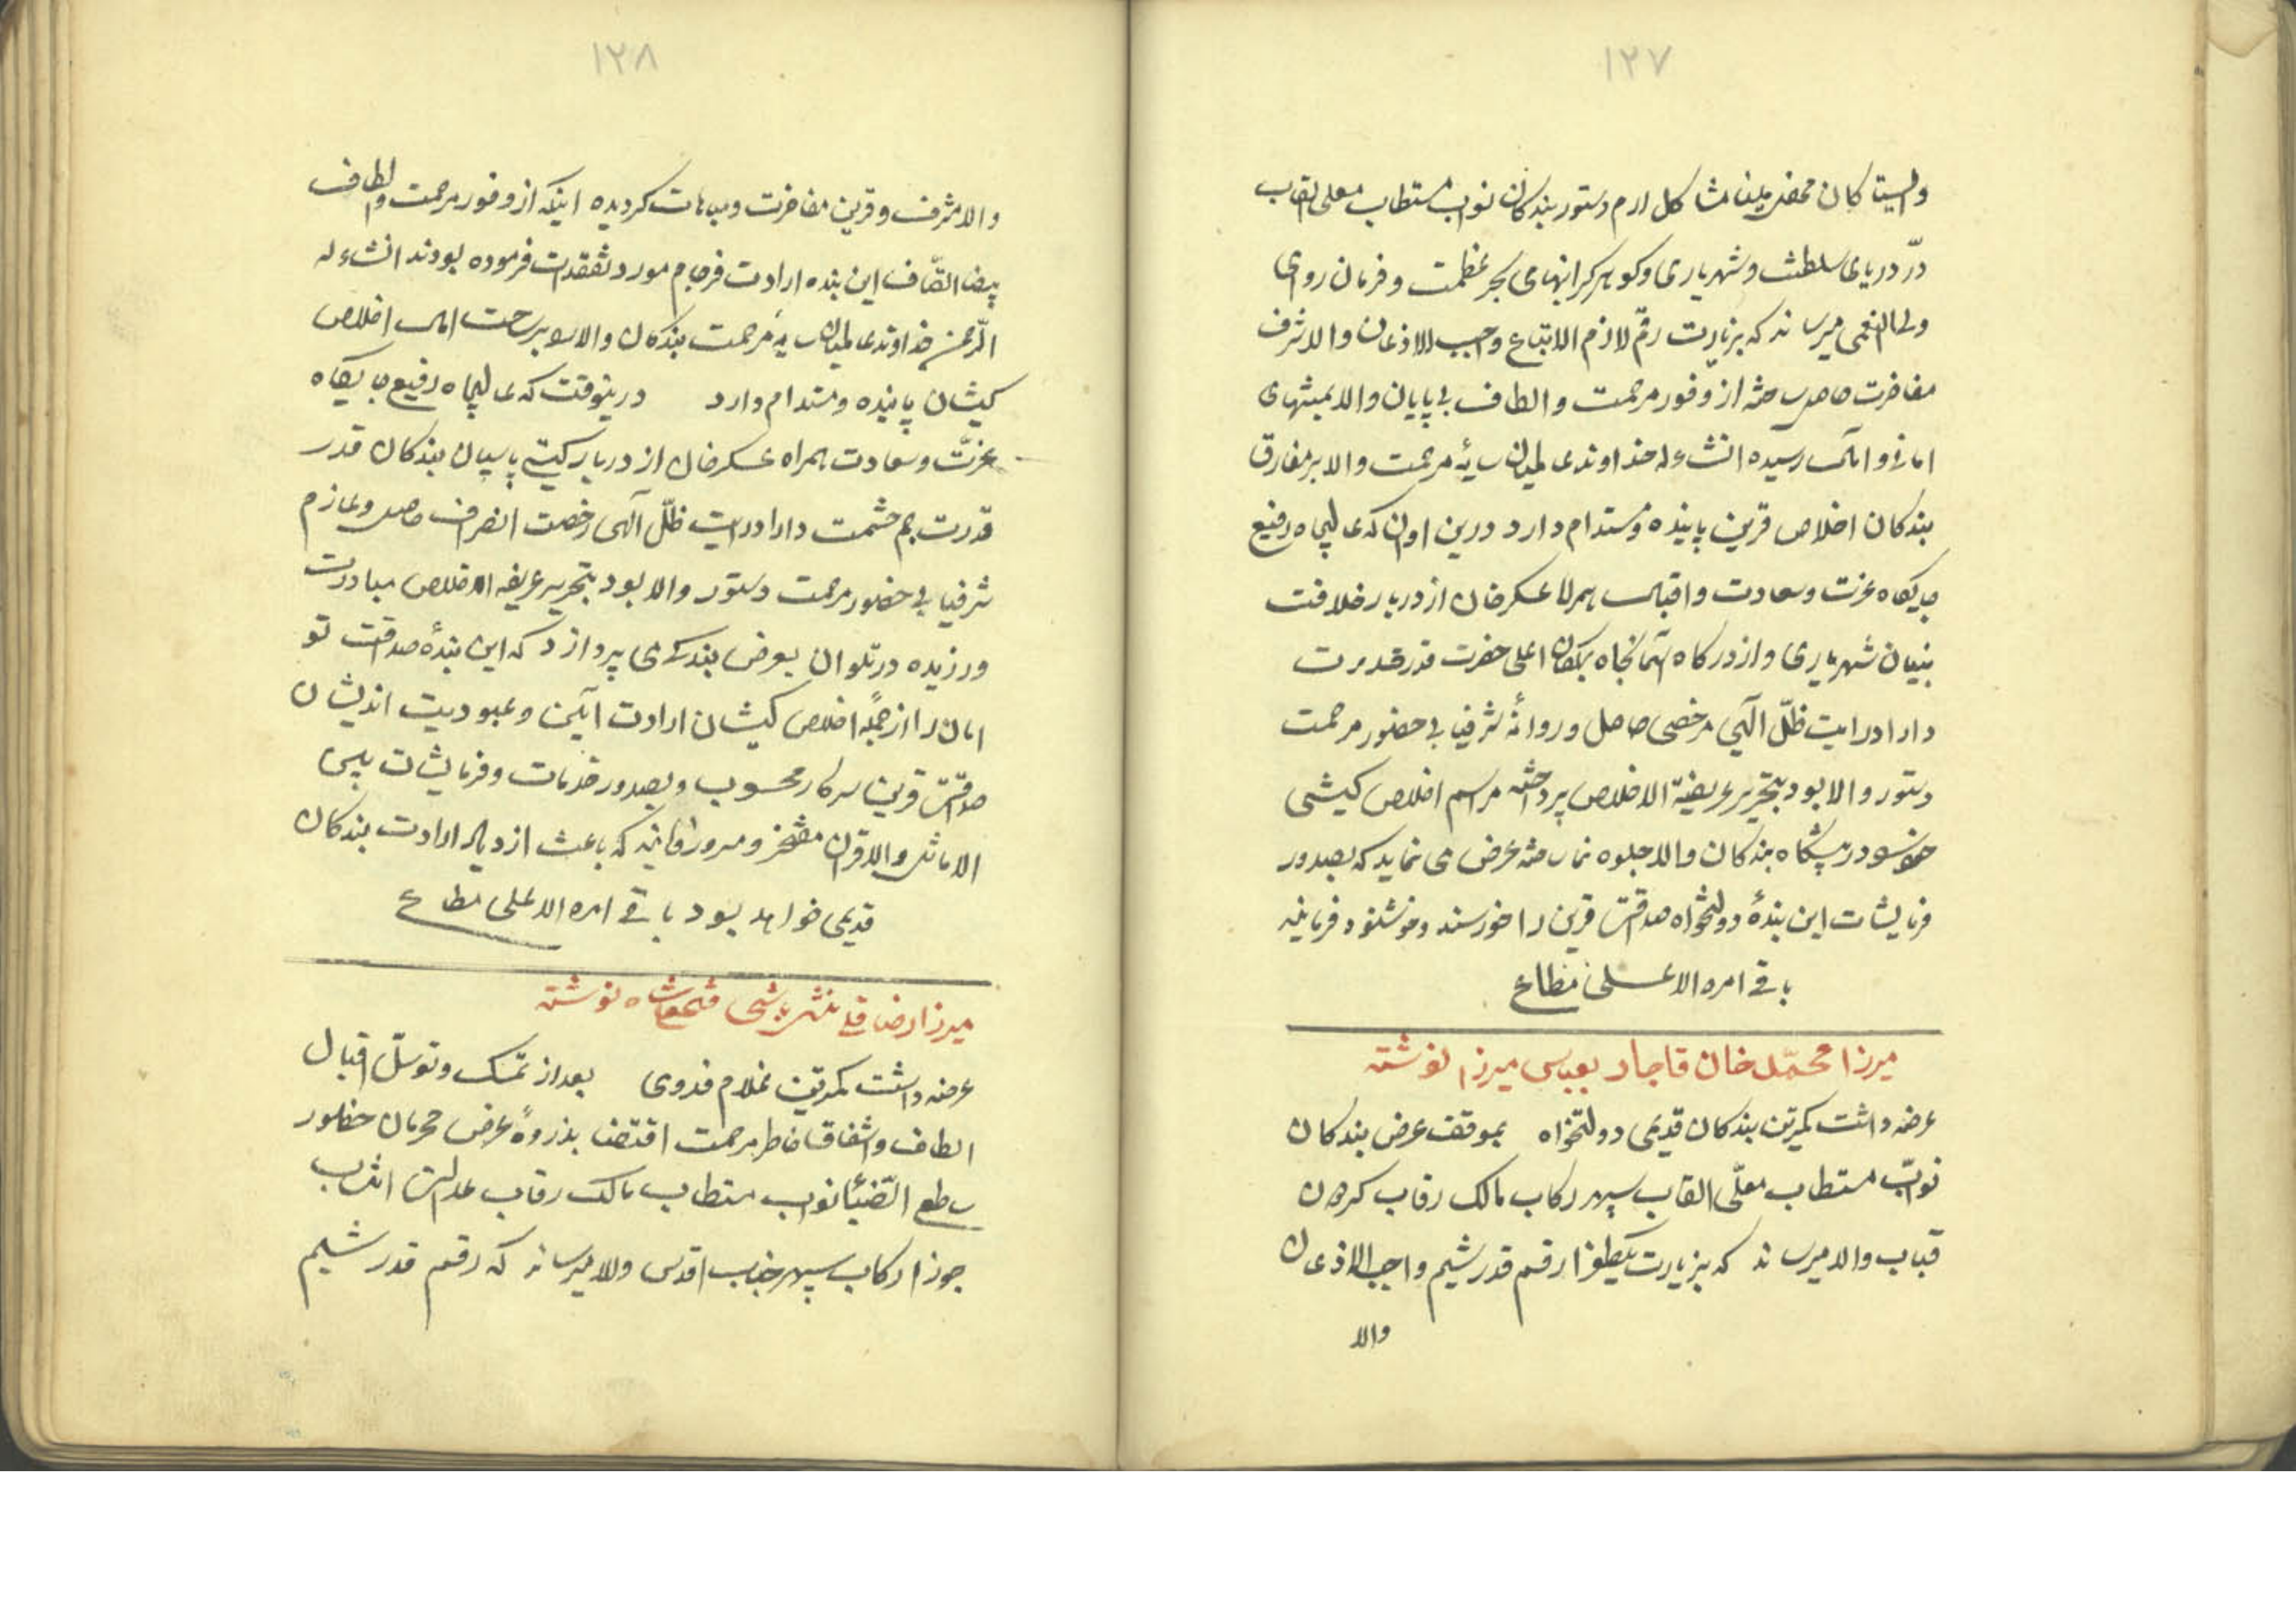 ۱۲۷
در دریای سلطنت و شهریاری و گوهر گرانبهای بحر عظمت و فرمان روای
ولی النعمی میرساند که بزیارت رقم لازم الاتباع واجب الاذعان والا شرف
مفاخرت حاصل ساخته از وفور مرحمت و الطاف بی پایان والا بمنتهای
امانی و آمال رسیده انشاءالله خداوند عالمیان سایهٔ مرحمت والا بر مفارق
بندکان اخلاص قرین پاینده و مستدام دارد درین اوان که عالیجاه رفیع
جایکاه عزت و سعادت و اقبال همراه عسکرخان از دربار خلافت
بنیان شهریاری و از درکاه اعلی حضرت قدرقدرت
دارادرایت ظلّ الٓهی مرخصی حاصل و روانهٔ شرفیابی حضور مرحمت
دستور والا بود بتحریر عریضة الاخلاص پرداخته مراسم اخلاص کیشی
خود در پیشکاه بندکان والا جلوه کر ساخته عرض می نماید که بصدور
فرمایشات این بندهٔ دولتخواه صداقت قرین را خورسند و خوشنود فرمایند
باقی امره الاعلی مطاع
میرزا محمّد خان قاجار بعباس میرزا نوشته
عرضه داشت کمترین بندکان قدیمی دولتخواه بموقف عرض بندکان
نوّاب مستطاب معلّی القاب سپهر رکاب مالک رقاب کردون
قباب والا میرساند که بزیارت یکطغرا رقم قدر شیم واجب الاذعان
والا
۱۲۸
والا مشرف و قرین مفاخرت و مباهات کردیده اینکه از وفور مرحمت و الطاف
این بنده ارادت فرجام مورد تفقدات فرموده بودند انشاءالله
الرّحمن خداوند عالمیان سایهٔ مرحمت بندکان والا را بر ساحت آمال اخلاص
کیشان پاینده و مستدام دارد درینوقت که عالیجاه رفیع جایکاه
عزّت و سعادت همراه عسکرخان از دربار کیتی پاسبان بندکان قدر
قدرت جم حشمت دارا درایت ظلّ الٓهی رخصت انصراف حاصل و عازم
شرفیابی حضور مرحمت دستور والا بود بتحریر عریضه الاخلاص مبادرت
ورزیده در تلو آن بعرض بندکی می پردازد که این بندهٔ صداقت تو
امان را از جملهٔ اخلاص کیشان ارادت آئین و عبودیت اندیشان
صداقت قرین سرکار محسوب و بصدور خدمات و فرمایشات بین
الاماثل والاقران مفتخر و مسرور فرمایند که باعث ازدیاد ارادت بندکان
قدیمی خواهد بود باقی امره الاعلی مطاع
میرزا رضا قلی منشی باشی بفتحعلیشاه نوشته
عرضه داشت کمترین غلام فدوی بعد از تمسک و توسّل اقبال
الطاف و اشفاق خاطر مرحمت اقتضا بذروهٔ عرض محرمان حضور
ساطع الضّیاء نواب مستطاب مالک رقاب عدالت انتساب
جوزا رکاب سپهر جناب اقدس والا میرساند که رقم قدر شیم